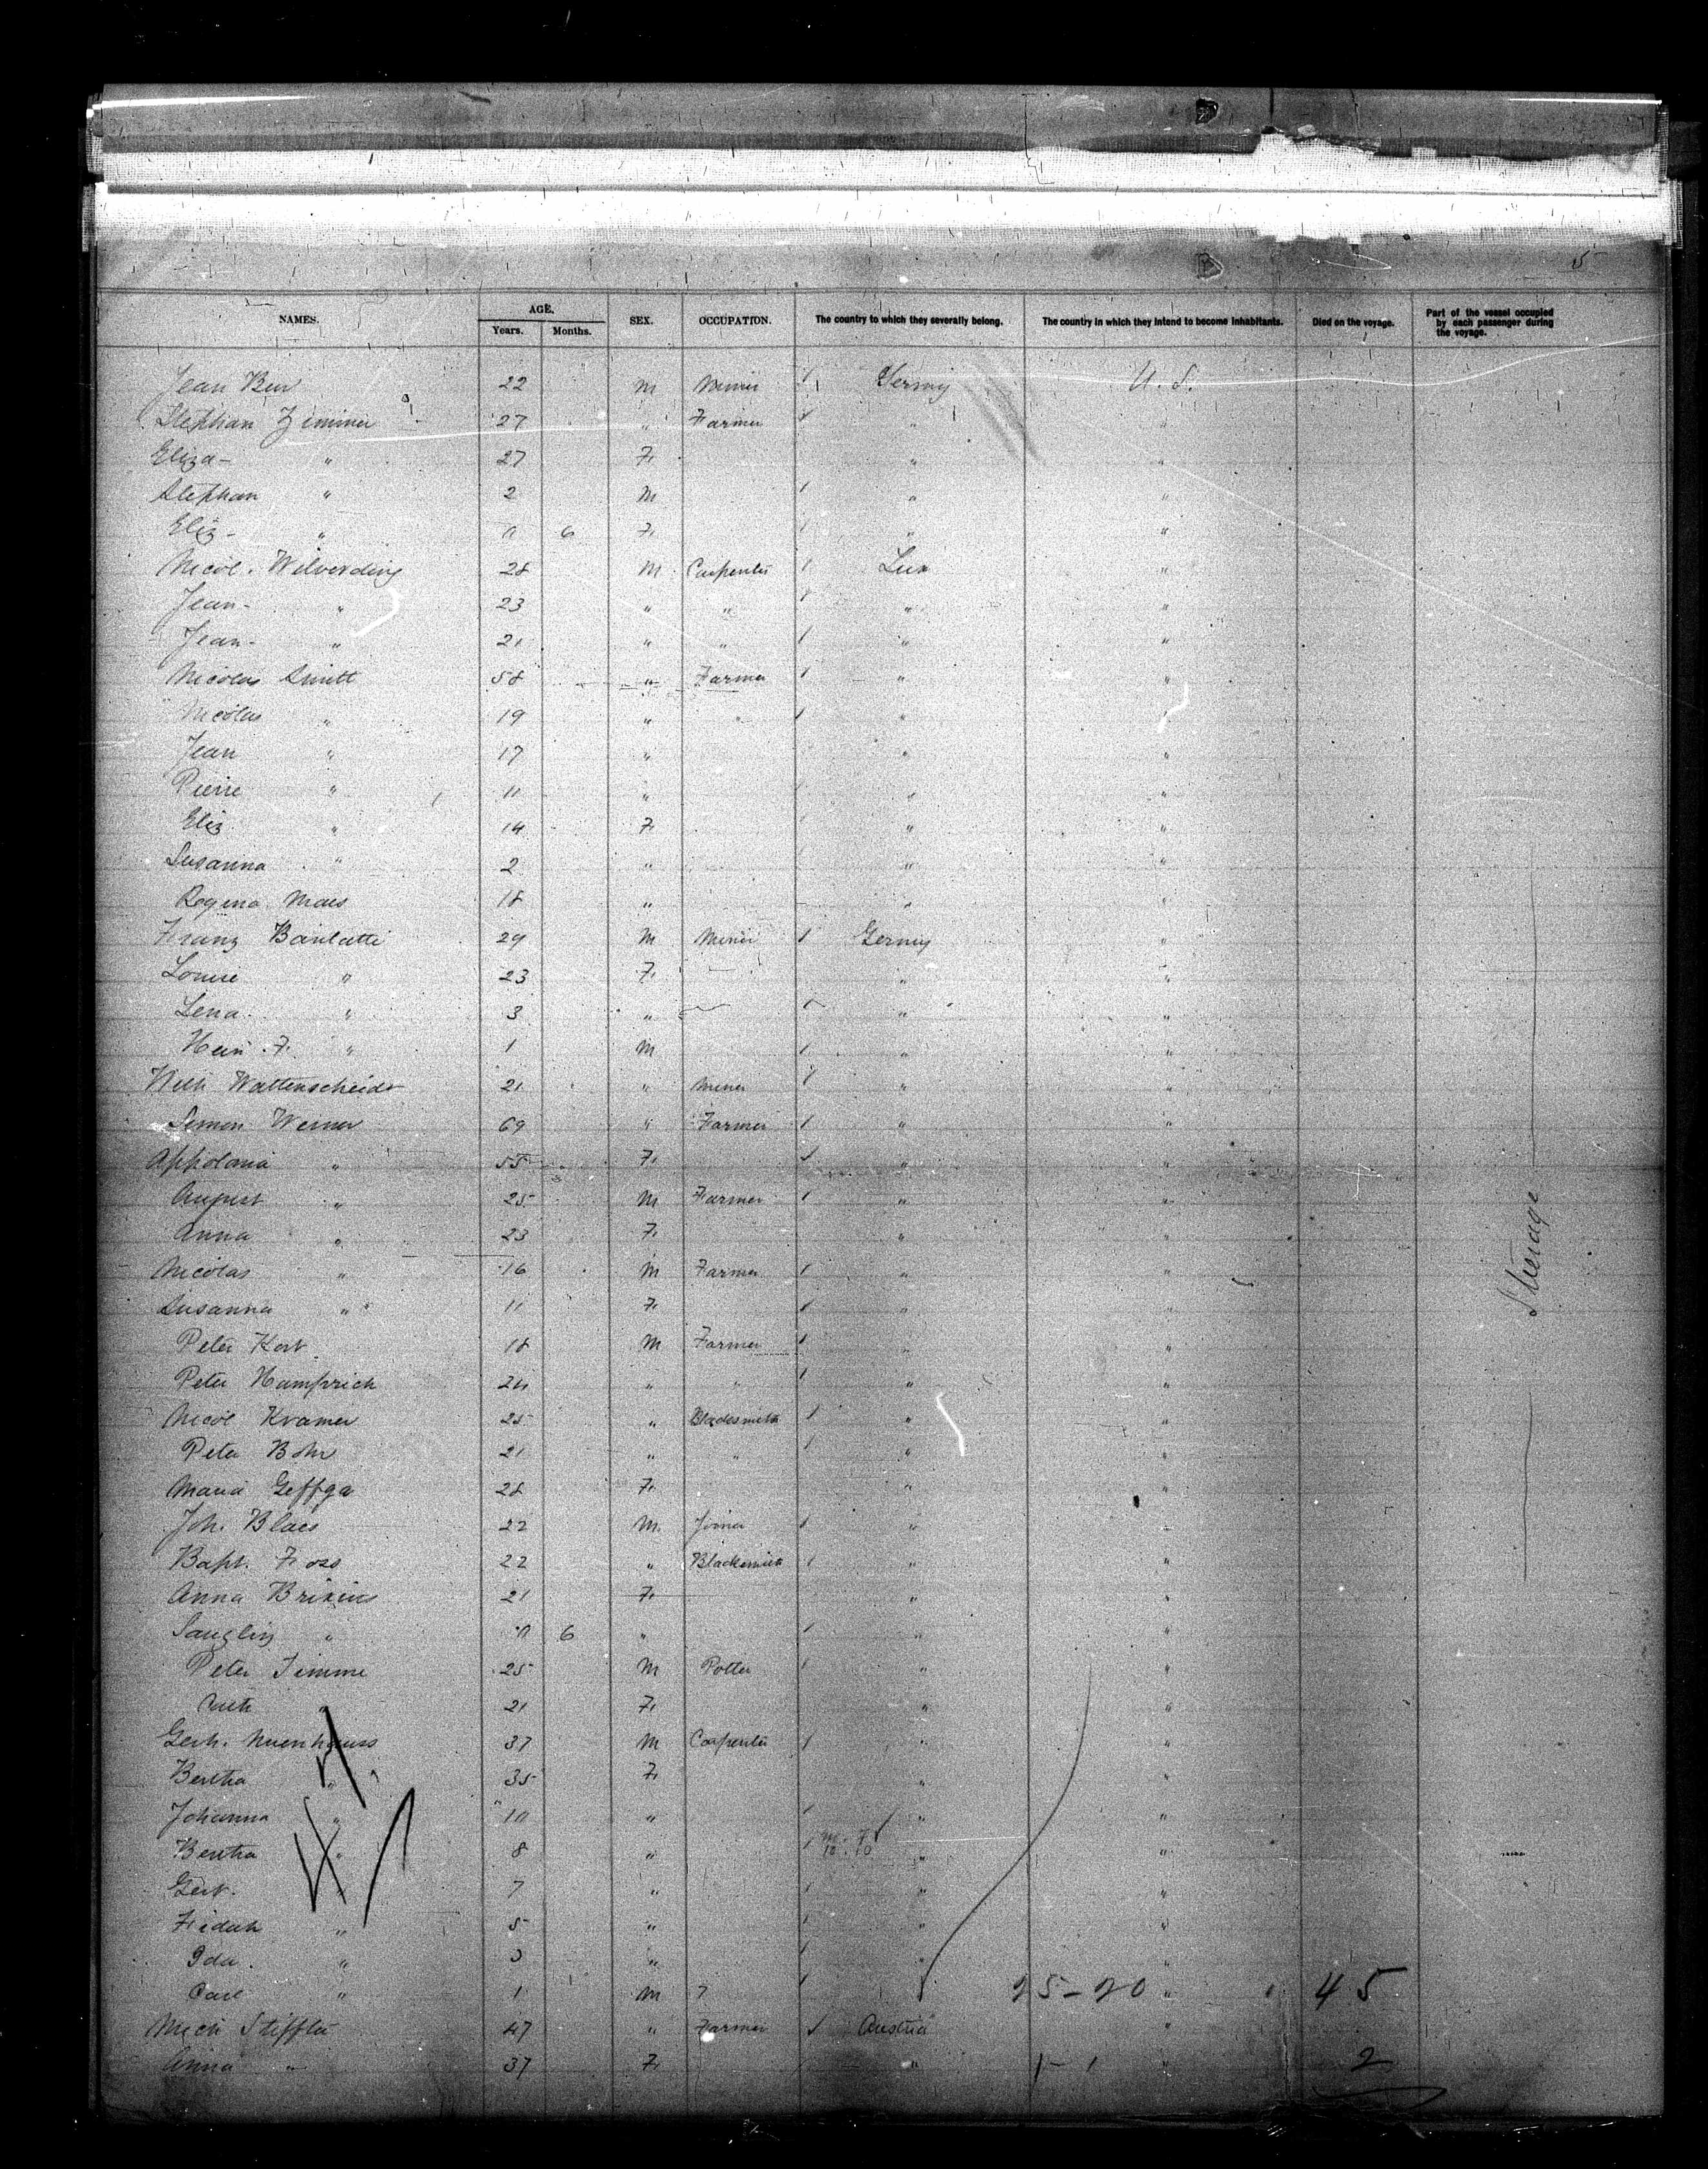 5
NAMES. AGE. Years. Months. SEX. OCCUPATION. The country to which they severally belong. The country in which they intend to become inhabitants. Died on the voyage. Part of the vessel occupied by each passenger during the voyage.
Jean 22 M Miner Germy U. S.
Stephan Zimmer 27 " Farmer " "
Eliza - " 27 F. " "
Stephan " 2 M " "
Eliz - " 0 6 F. " "
Nicol. Wilverding 28 M. Carpenter Lux "
Jean - " 23 " " " "
Jean - " 21 " " " "
Nicolas Smitt 58 " Farmer " "
Nicolas " 19 " " " "
Jean " 17 " " "
Pierre " 11 " " "
Eliz. " 14 F. " "
Susanna " 2 " " "
Regina Maes 18 " " "
Franz 29 M Miner Germy "
Louise " 23 F. " "
Lena. " 3 " " "
Hein. F. " 1 M " "
Wilh Wattenscheidt 21 " Miner " "
Simon Weiner 69 " Farmer " "
Appolonia " 55 F. " "
August " 25 M Farmer " "
Anna " 23 F. " "
Nicolas " 16 M Farmer " "
Susanna " 11 F. " "
Peter Kort 18 M Farmer " "
Peter Hamprich 24 " " " "
Nicol Kramer 25 " Blacksmith " "
Peter Bohr 21 " " " "
Maria Geffga 28 F. " "
Joh. Blaes 22 M. Joiner " "
Bapt. Foss 22 " Blacksmith " "
Anna Brixius 21 F. " "
Sauglin " 0 6 " " "
Peter Timme 25 M Potter " "
Cath " 21 F. " "
Gerh. Nuenhauss 37 M Carpenter " "
Bertha " 35 F. " "
Johanna " 10 " " "
Bertha " 8 " M. F. 10. 10 " "
Gert. " 7 " " "
Fidah " 5 " " "
Ida. " 3 " " "
Carl " 1 M ? 25 - 20 " 45
Mich Stiffler 47 " Farmer Austria "
Anna " 37 F. " 1 - 1 " 2
Steerage